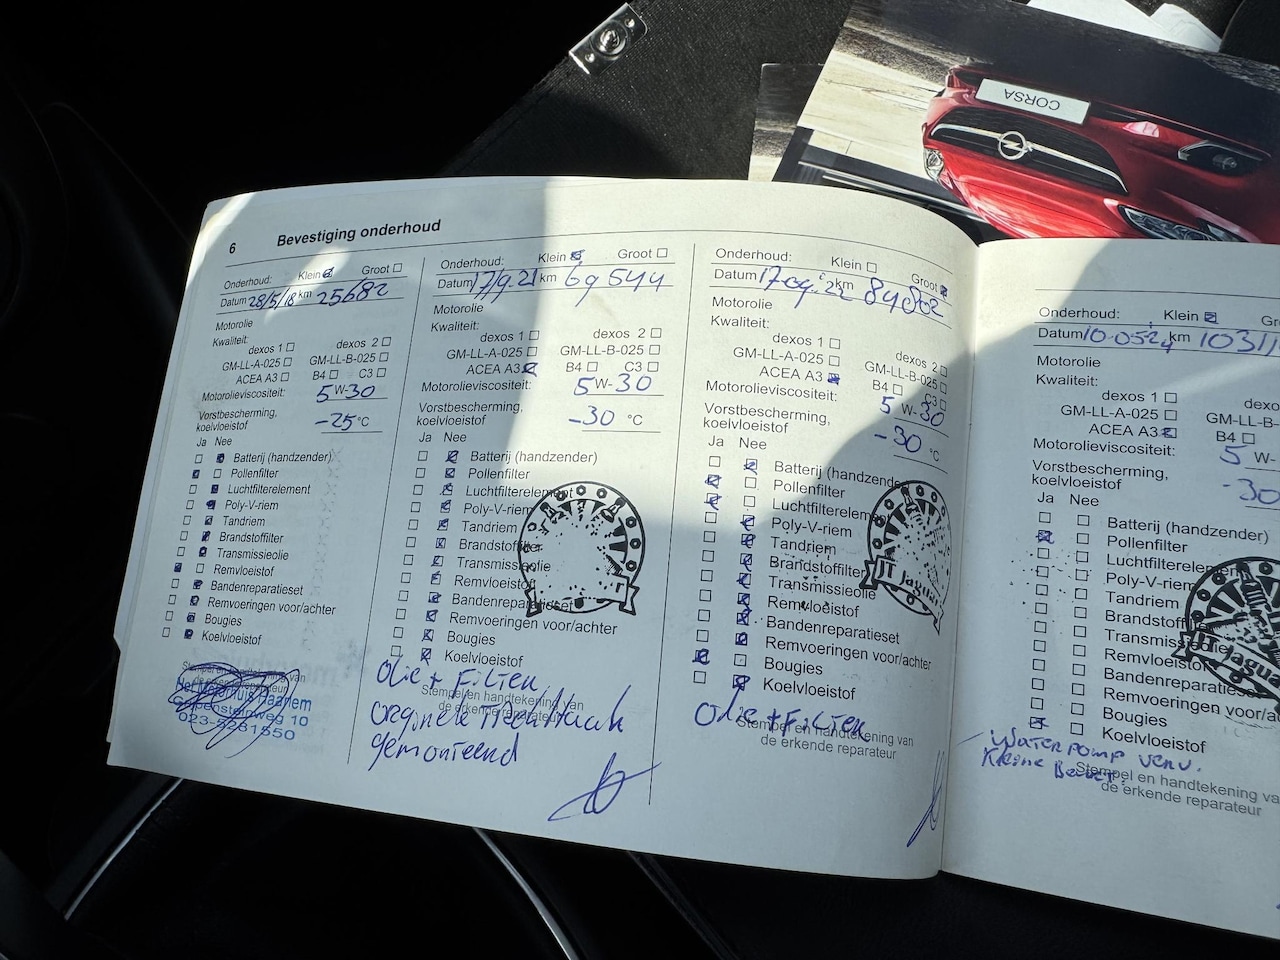 CORSA
6 Bevestiging onderhoud
Onderhoud: Klein Groot
Datum 28/5/18 km 25682
Motorolie
Kwaliteit:
dexos 1 dexos 2
GM-LL-A-025 GM-LL-B-025
ACEA A3 B4 C3
Motorolieviscositeit: 5 W-30
Vorstbescherming,
koelvloeistof -25 °C
Ja Nee
Batterij (handzender)
Pollenfilter
Luchtfilterelement
Poly-V-riem
Tandriem
Brandstoffilter
Transmissieolie
Remvloeistof
Bandenreparatieset
Remvoeringen voor/achter
Bougies
Koelvloeistof
Haarlem
Onderhoud: Klein Groot
Datum 17/9.21 km 69544
Motorolie
Kwaliteit:
dexos 1 dexos 2
GM-LL-A-025 GM-LL-B-025
ACEA A3 B4 C3
Motorolieviscositeit: 5 W-30
Vorstbescherming,
koelvloeistof -30 °C
Ja Nee
Batterij (handzender)
Pollenfilter
Luchtfilterelement
Poly-V-riem
Tandriem
Brandstoffilter
Transmissie
Remvloeistof
Bandenreparatieset
Remvoeringen voor/achter
Bougies
Koelvloeistof
Olie + Filter
Stempel en handtekening van
de erkende reparateur
gemonteerd
Onderhoud: Klein Groot
Datum km
Motorolie
Kwaliteit:
dexos 1 dexos 2
GM-LL-A-025 GM-LL-B-025
ACEA A3 B4 C3
Motorolieviscositeit: 5 W-30
Vorstbescherming,
koelvloeistof -30 °C
Ja Nee
Batterij (handzender
Pollenfilter
Luchtfilterelem
Poly-V-riem
Tandriem
Brandstoffilter
Transmissieolie
Remvloeistof
Bandenreparatieset
Remvoeringen voor/achter
Bougies
Koelvloeistof
JT Jagua
Olie + Filter
Stempel en handtekening van
de erkende reparateur
Onderhoud: Klein Gr
Datum 10-0524 km
Motorolie
Kwaliteit:
dexos 1 dexo
GM-LL-A-025 GM-LL-B-
ACEA A3 B4
Motorolieviscositeit: 5 W-
Vorstbescherming,
koelvloeistof -30
Ja Nee
Batterij (handzender)
Pollenfilter
Luchtfilterele
Poly-V-riem
Tandriem
Brandstof
Transmiss
Remvloeistof
Bandenreparaties
Remvoeringen voor/a
Bougies
Koelvloeistof
JT Jagua
Waterpomp verv.
Kleine Beurt.
Stempel en handtekening va
de erkende reparateur